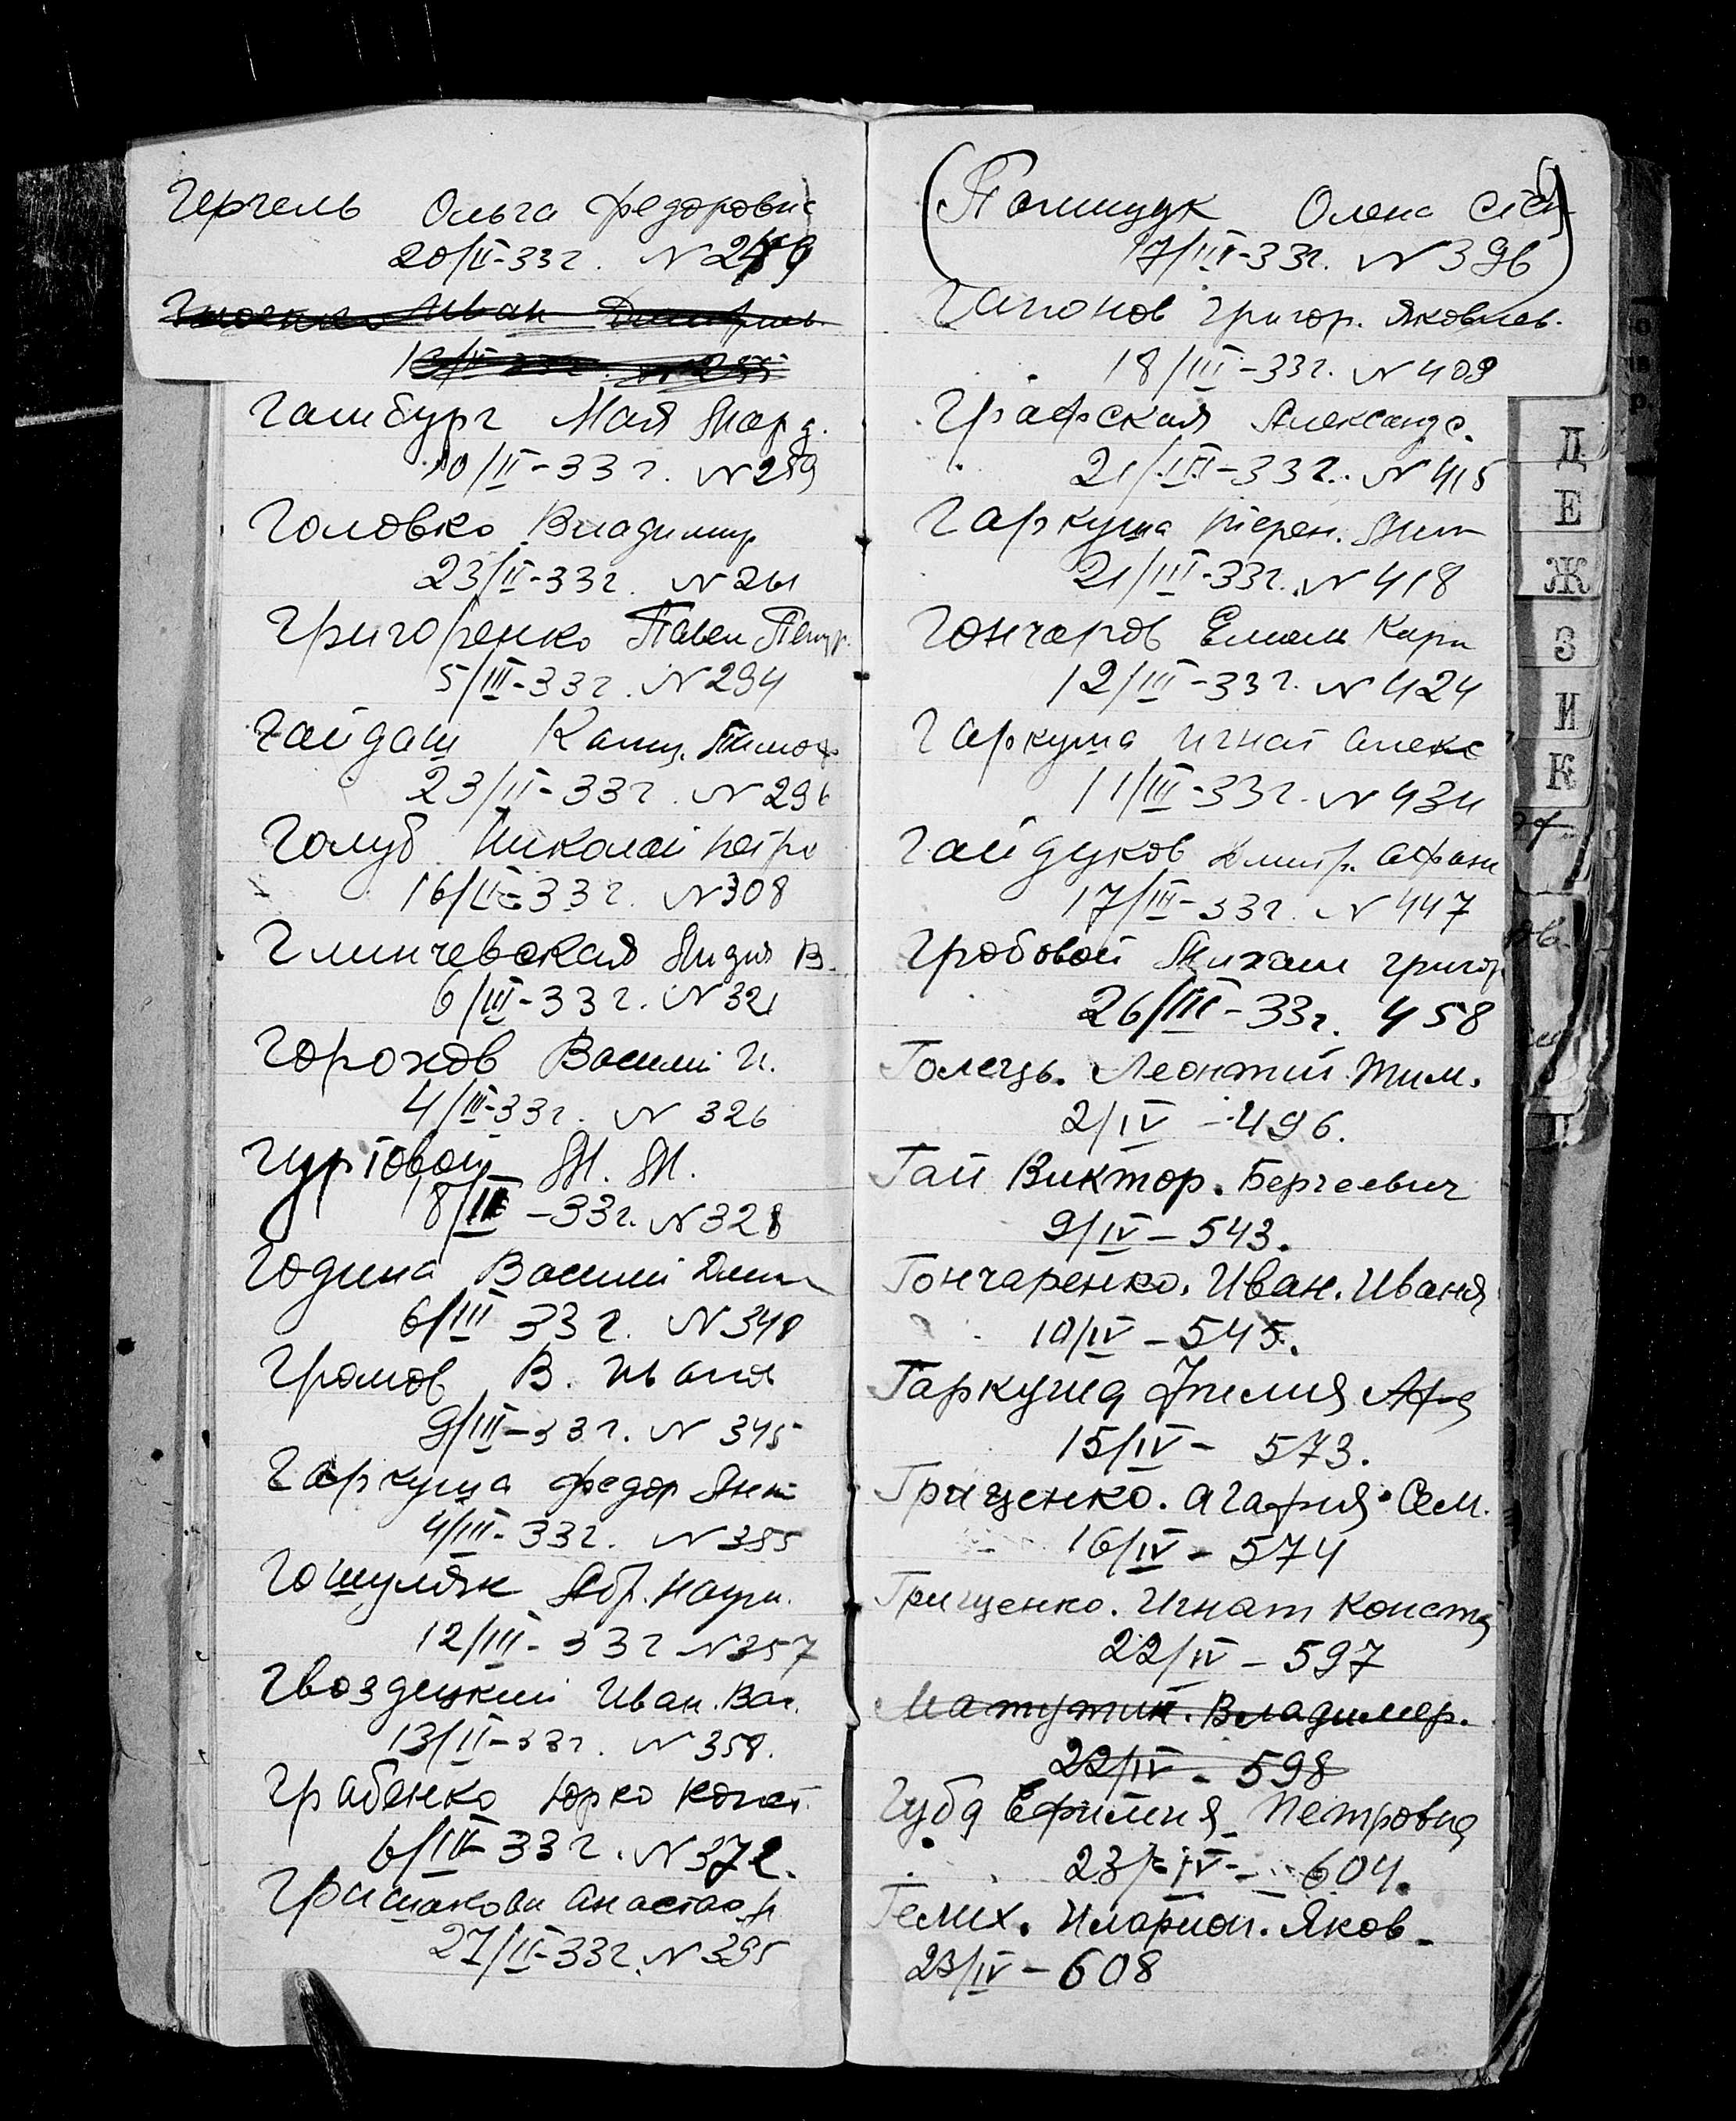 Гергель Ольга Федоровна
20/II-33г. N 249
Иван Дмитриев.
Гамбург Мая Мард.
10/II-33г. N 259
Головко Владимир
23/II-33г. N 261
Григоренко Павел Петр.
5/III-33г. N 294
Гайдаш Тимоф
23/II-33г. N 296
Голуб Николай Петро
16/II-33г. N 308
Глинчевская Лидия В.
6/III-33г. N 321
Горохов Василий И.
4/III-33г. N 326
Гуртовой М. М.
8/III-33г. N 328
Година Василий Дми
6/III 33г. N 340
Громов В. Иваня
9/III-33г. N 345
Гаркуша Федор
4/III-33г. N 355
Гошуляк Абр. Наум.
12/III-33г N 357
Гвоздецкий Иван. Вас.
13/II-33г. N 358.
Грабенко Юрко Конст.
6/III-33г. N 372.
Гришакова Анастас.
27/II-33г. N 395
(Полищук Олена Степ
17/III-33г. N 396)
Гапонов Григор. Яковлев.
18/III-33г. N 409
Графская Александ.
21/III-33г. N 415
Гаркуша Терен.
21/III-33г. N 418
Гончаров Емел. Карп
12/III-33г. N 424
Гаркуша Игнат Алекс
11/III-33г. N 434
Гайдуков Дмитр. Афан
17/III-33г. N 447
Гробовой Михаил Григор
26/III-33г. 458
Голець. Леонтий Тим.
2/IV - 496.
Гай Виктор. Бергеевич
9/IV - 543.
Гончаренко. Иван. Иваня
10/IV - 545.
Гаркуша
15/IV - 573.
Грищенко. Агафия. Сем.
16/IV - 574
Грищенко. Игнат Конста
22/IV - 597
Матутин. Владимер.
22/IV - 598
Губа Ефимия Петровна
23/IV - 604.
Гемих. Иларион. Яков-
23/IV - 608
Д
Е
Ж
З
И
К